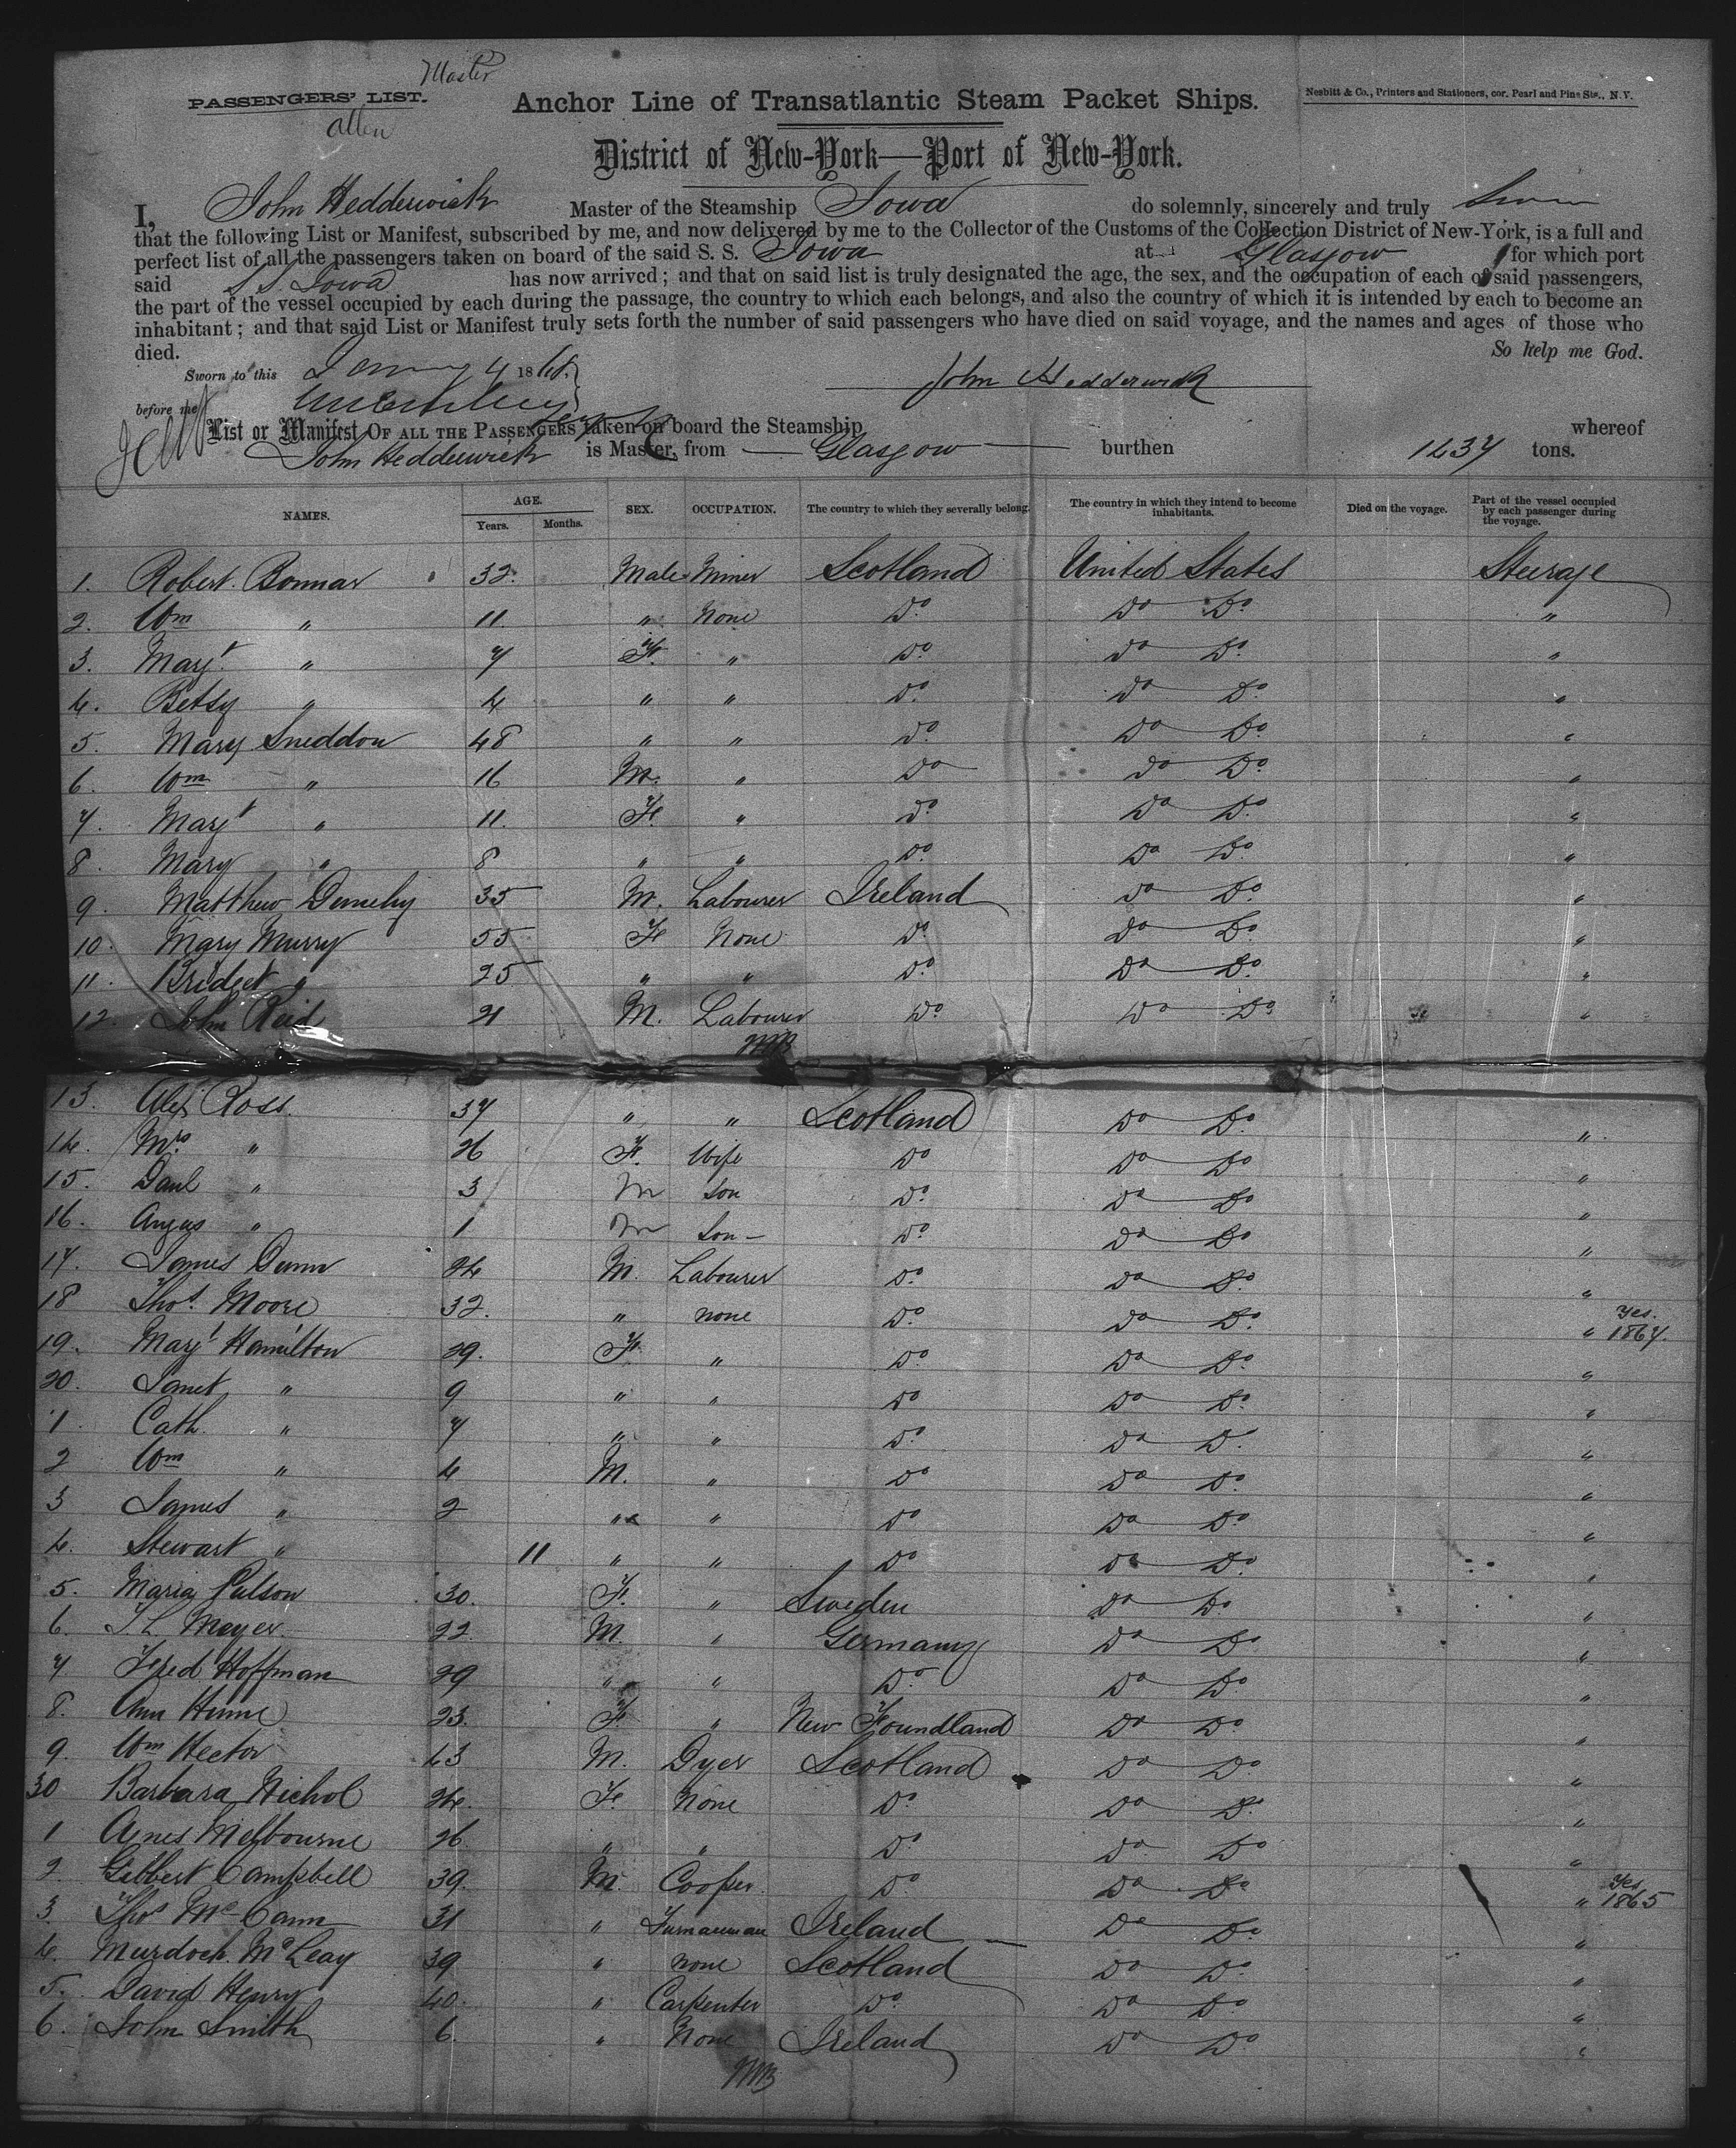 Master
PASSENGERS' LIST. Anchor Line of Transatlantic Steam Packet Ships. Nesbitt & Co., Printers and Stationers, cor. Pearl and Pine Sts., N.Y.
Allen
District of New-York—Port of New-York.
I, John Hedderwick Master of the Steamship Iowa do solemnly, sincerely and truly
that the following List or Manifest, subscribed by me, and now delivered by me to the Collector of the Customs of the Collection District of New-York, is a full and
perfect list of all the passengers taken on board of the said S. S. Iowa at Glasgow for which port
said S.S. Iowa has now arrived; and that on said list is truly designated the age, the sex, and the occupation of each of said passengers,
the part of the vessel occupied by each during the passage, the country to which each belongs, and also the country of which it is intended by each to become an
inhabitant; and that said List or Manifest truly sets forth the number of said passengers who have died on said voyage, and the names and ages of those who
died. So help me God.
Sworn to this 4 1868 John Hedderwick
before me
List or Manifest OF ALL THE PASSENGERS taken on board the Steamship whereof
John Hedderwick is Master, from Glasgow burthen 1237 tons.
NAMES. AGE. Years. Months. SEX. OCCUPATION. The country to which they severally belong. The country in which they intend to become inhabitants. Died on the voyage. Part of the vessel occupied by each passenger during the voyage.
1. Robert Bonnar 32. Male Miner Scotland United States Steerage
2. Wm " 11. " None Do Do Do "
3. Mayt " 7 F. " Do Do Do. "
4. Betsy " 4 " " Do. Do Do. "
5. Mary Sneddon 48 " " Do. Do Do. "
6. Wm " 16 M. " Do Do Do. "
7. Mayt " 11. F. " Do Do Do. "
8. Mary " 8 " " Do. Do Do. "
9. Matthew 35 M. Labourer Ireland Do Do. "
10. Mary Murry 55 F None Do. Do Do. "
11. Bridget " 25 " " Do. Do Do. "
12. John Reid 21 M. Labourer Do. Do Do "
13. Alex Ross. 37 " " Scotland Do Do. "
14. Mrs " 26 F. Wife Do Do Do "
15. Danl " 3 M Son Do. Do Do "
16. Angus " 1 M Son Do. Do Do "
17. James Dunn 24 M. Labourer Do. Do Do. "
18 Thos. Moore 32. " none Do. Do Do. " Yes. 1867.
19. Mayt Hamilton 29. F. " Do. Do Do. "
20. Janet " 9 " " Do Do Do. "
1. Cath. " 7 " " Do. Do Do. "
2 Wm " 4 M. " Do Do Do. "
3 James " 2 " " Do Do Do. "
4. Stewart " 11 " " Do Do Do. "
5. Maria Palson 30. F. " Sweden Do Do. "
6. J. L. Meyer 22. M. " Germany Do Do. "
7 Fred Hoffman 29 " " Do. Do Do. "
8. Ann Hume 23. F. " New Foundland Do Do. "
9. Wm Hector 43 M. Dyer Scotland Do Do. "
30 Barbara Nichol 24. F. None Do. Do Do. "
1 Agnes Melbourne 26 " " Do. Do. Do "
2. Gilbert Campbell 39. M. Cooper. Do. Do Do " Yes 1865
3. Thos McCann 31 " Furnaceman Ireland Do Do. "
4. Murdoch McLeay 39 " none Scotland Do Do. "
5. David Henry 40. " Carpenter Do. Do Do. "
6. John Smith 6. " None Ireland Do Do "